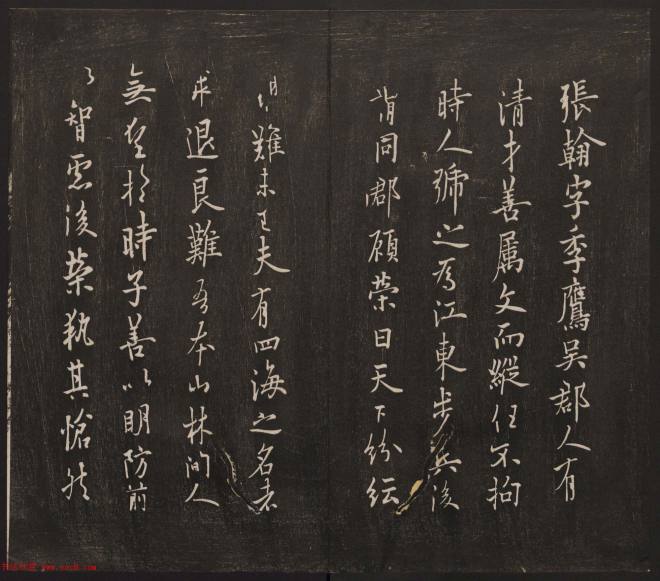 張翰字季鷹吳郡人有
清才善属文而縱任不拘
時人號之為江東步兵後
謂同郡顧榮曰天下紛紜
禍難未已夫有四海之名者
求退良難吾本山林間人
無望於時子善以明防前
以智慮後榮執其愴然